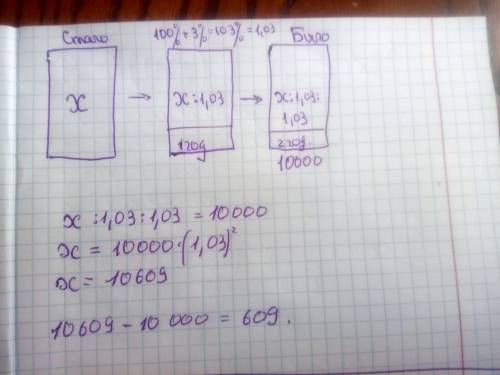 Стало 100%+3%=103%=1,03 Было
x → x:1,03 → x:1,03:
1,03
1год 2год.
10000
x:1,03:1,03 = 10000
x = 10000·(1,03)²
x = 10609
10609 - 10 000 = 609.